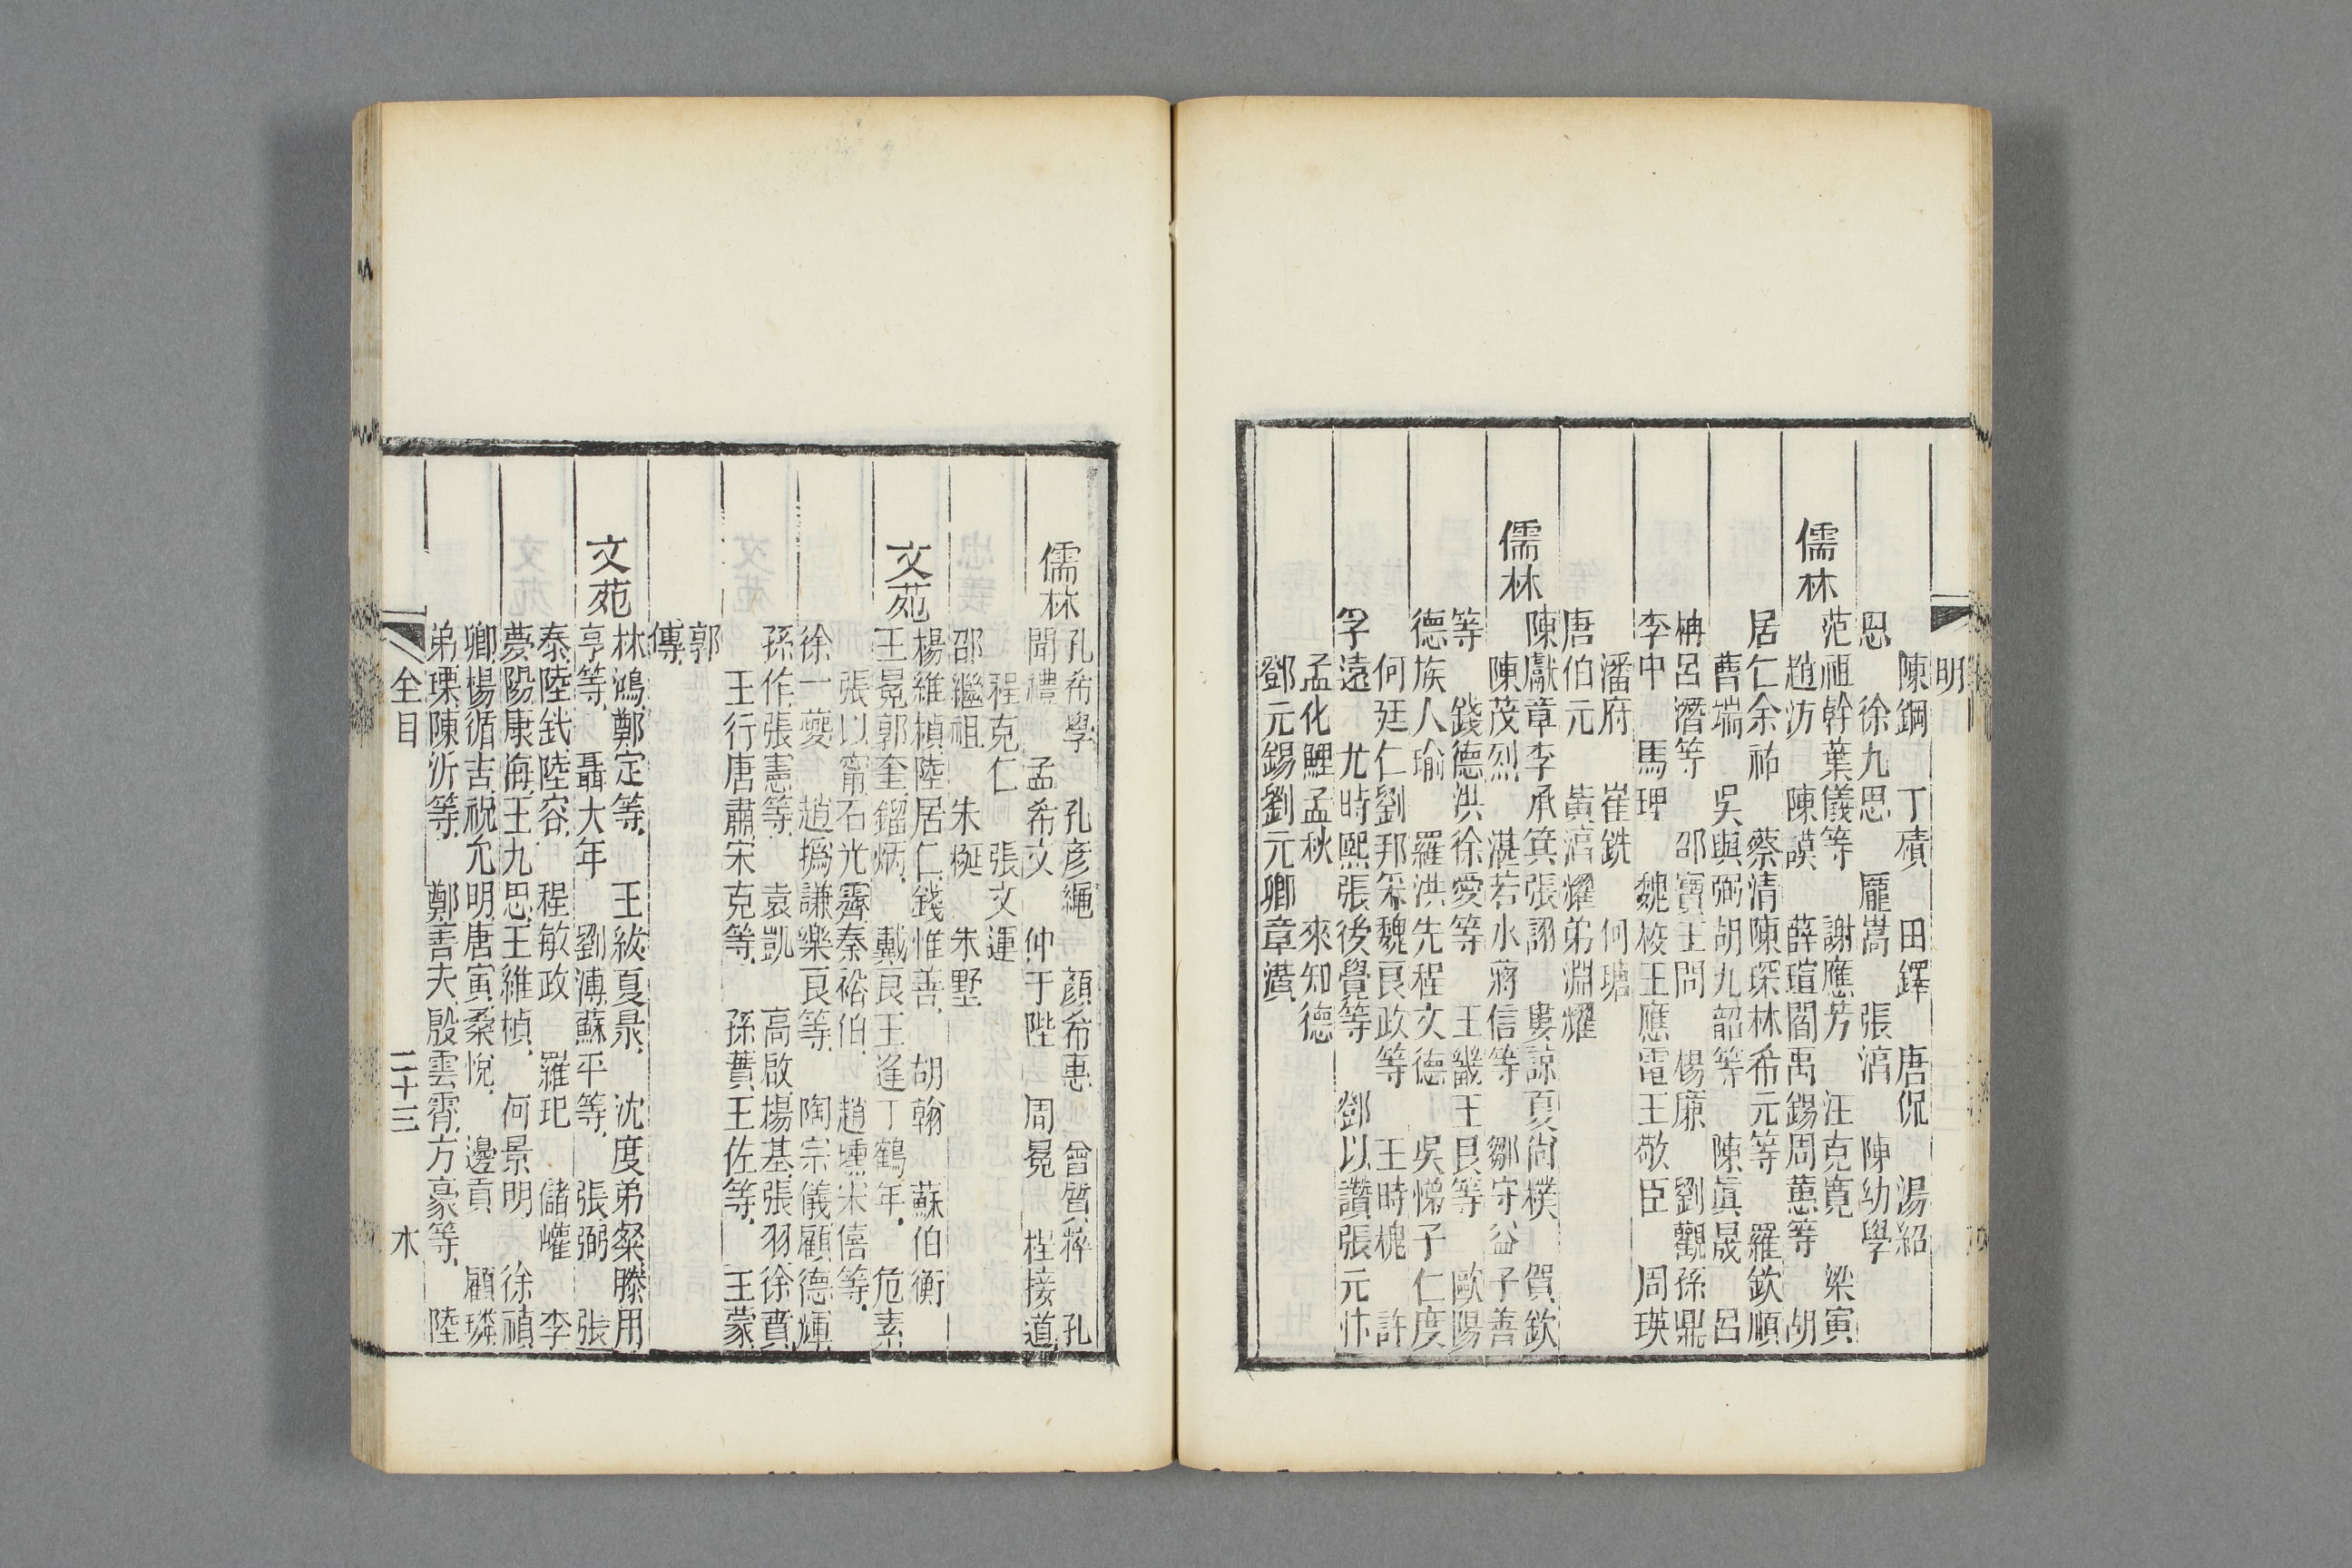 明
陳鋼　丁積　田鐸　唐侃　湯紹
恩　徐九思　龐嵩　張淳　陳幼學
儒林
范祖幹葉儀等　謝應芳　汪克寬　梁寅
趙汸　陳謨　薛瑄閻禹錫周蕙等　胡
居仁余祐　蔡清陳琛林希元等　羅欽順
曹端　吳與弼胡九韶等　陳眞晟　呂
柟呂潛等　邵寶王問　楊廉　劉觀孫鼎
李中　馬理　魏校王應電王敬臣　周瑛
潘府　崔銑　何瑭
唐伯元　黃淳耀弟淵耀
儒林
陳獻章李承箕張詡　婁諒夏尙樸　賀欽
陳茂烈　湛若水蔣信等　鄒守益子善
等　錢德洪徐愛等　王畿王艮等　歐陽
德族人瑜　羅洪先程文德　吳悌子仁度
何廷仁劉邦采魏良政等　王時槐　許
孚遠　尤時熙張後覺等　鄧以讚張元忭
孟化鯉孟秋　來知德
鄧元錫劉元卿章潢
儒林
孔希學　孔彦繩　顔希惠　曾質粹　孔
聞禮　孟希文　仲于陛　周冕　程接道
程克仁　張文運
邵繼祖　朱梴　朱墅
文苑
楊維楨陸居仁錢惟善　胡翰　蘇伯衡
王冕郭奎鎦炳　戴良王逢丁鶴年　危素
張以甯石光霽秦裕伯　趙壎宋僖等
徐一夔　趙撝謙樂良等　陶宗儀顧德輝
孫作張憲等　袁凱　高啟楊基張羽徐賁
王行唐肅宋克等　孫蕡王佐等　王蒙
郭
傳
文苑
林鴻鄭定等　王紱夏㫤　沈度弟粲滕用
亨等　聶大年　劉溥蘇平等　張弼　張
泰陸釴陸容　程敏政　羅玘　儲巏　李
夢陽康海王九思王維楨　何景明　徐禎
卿楊循吉祝允明唐寅桑悅　邊貢　顧璘
弟瑮陳沂等　鄭善夫殷雲霄方豪等　陸
全目
二十三
木